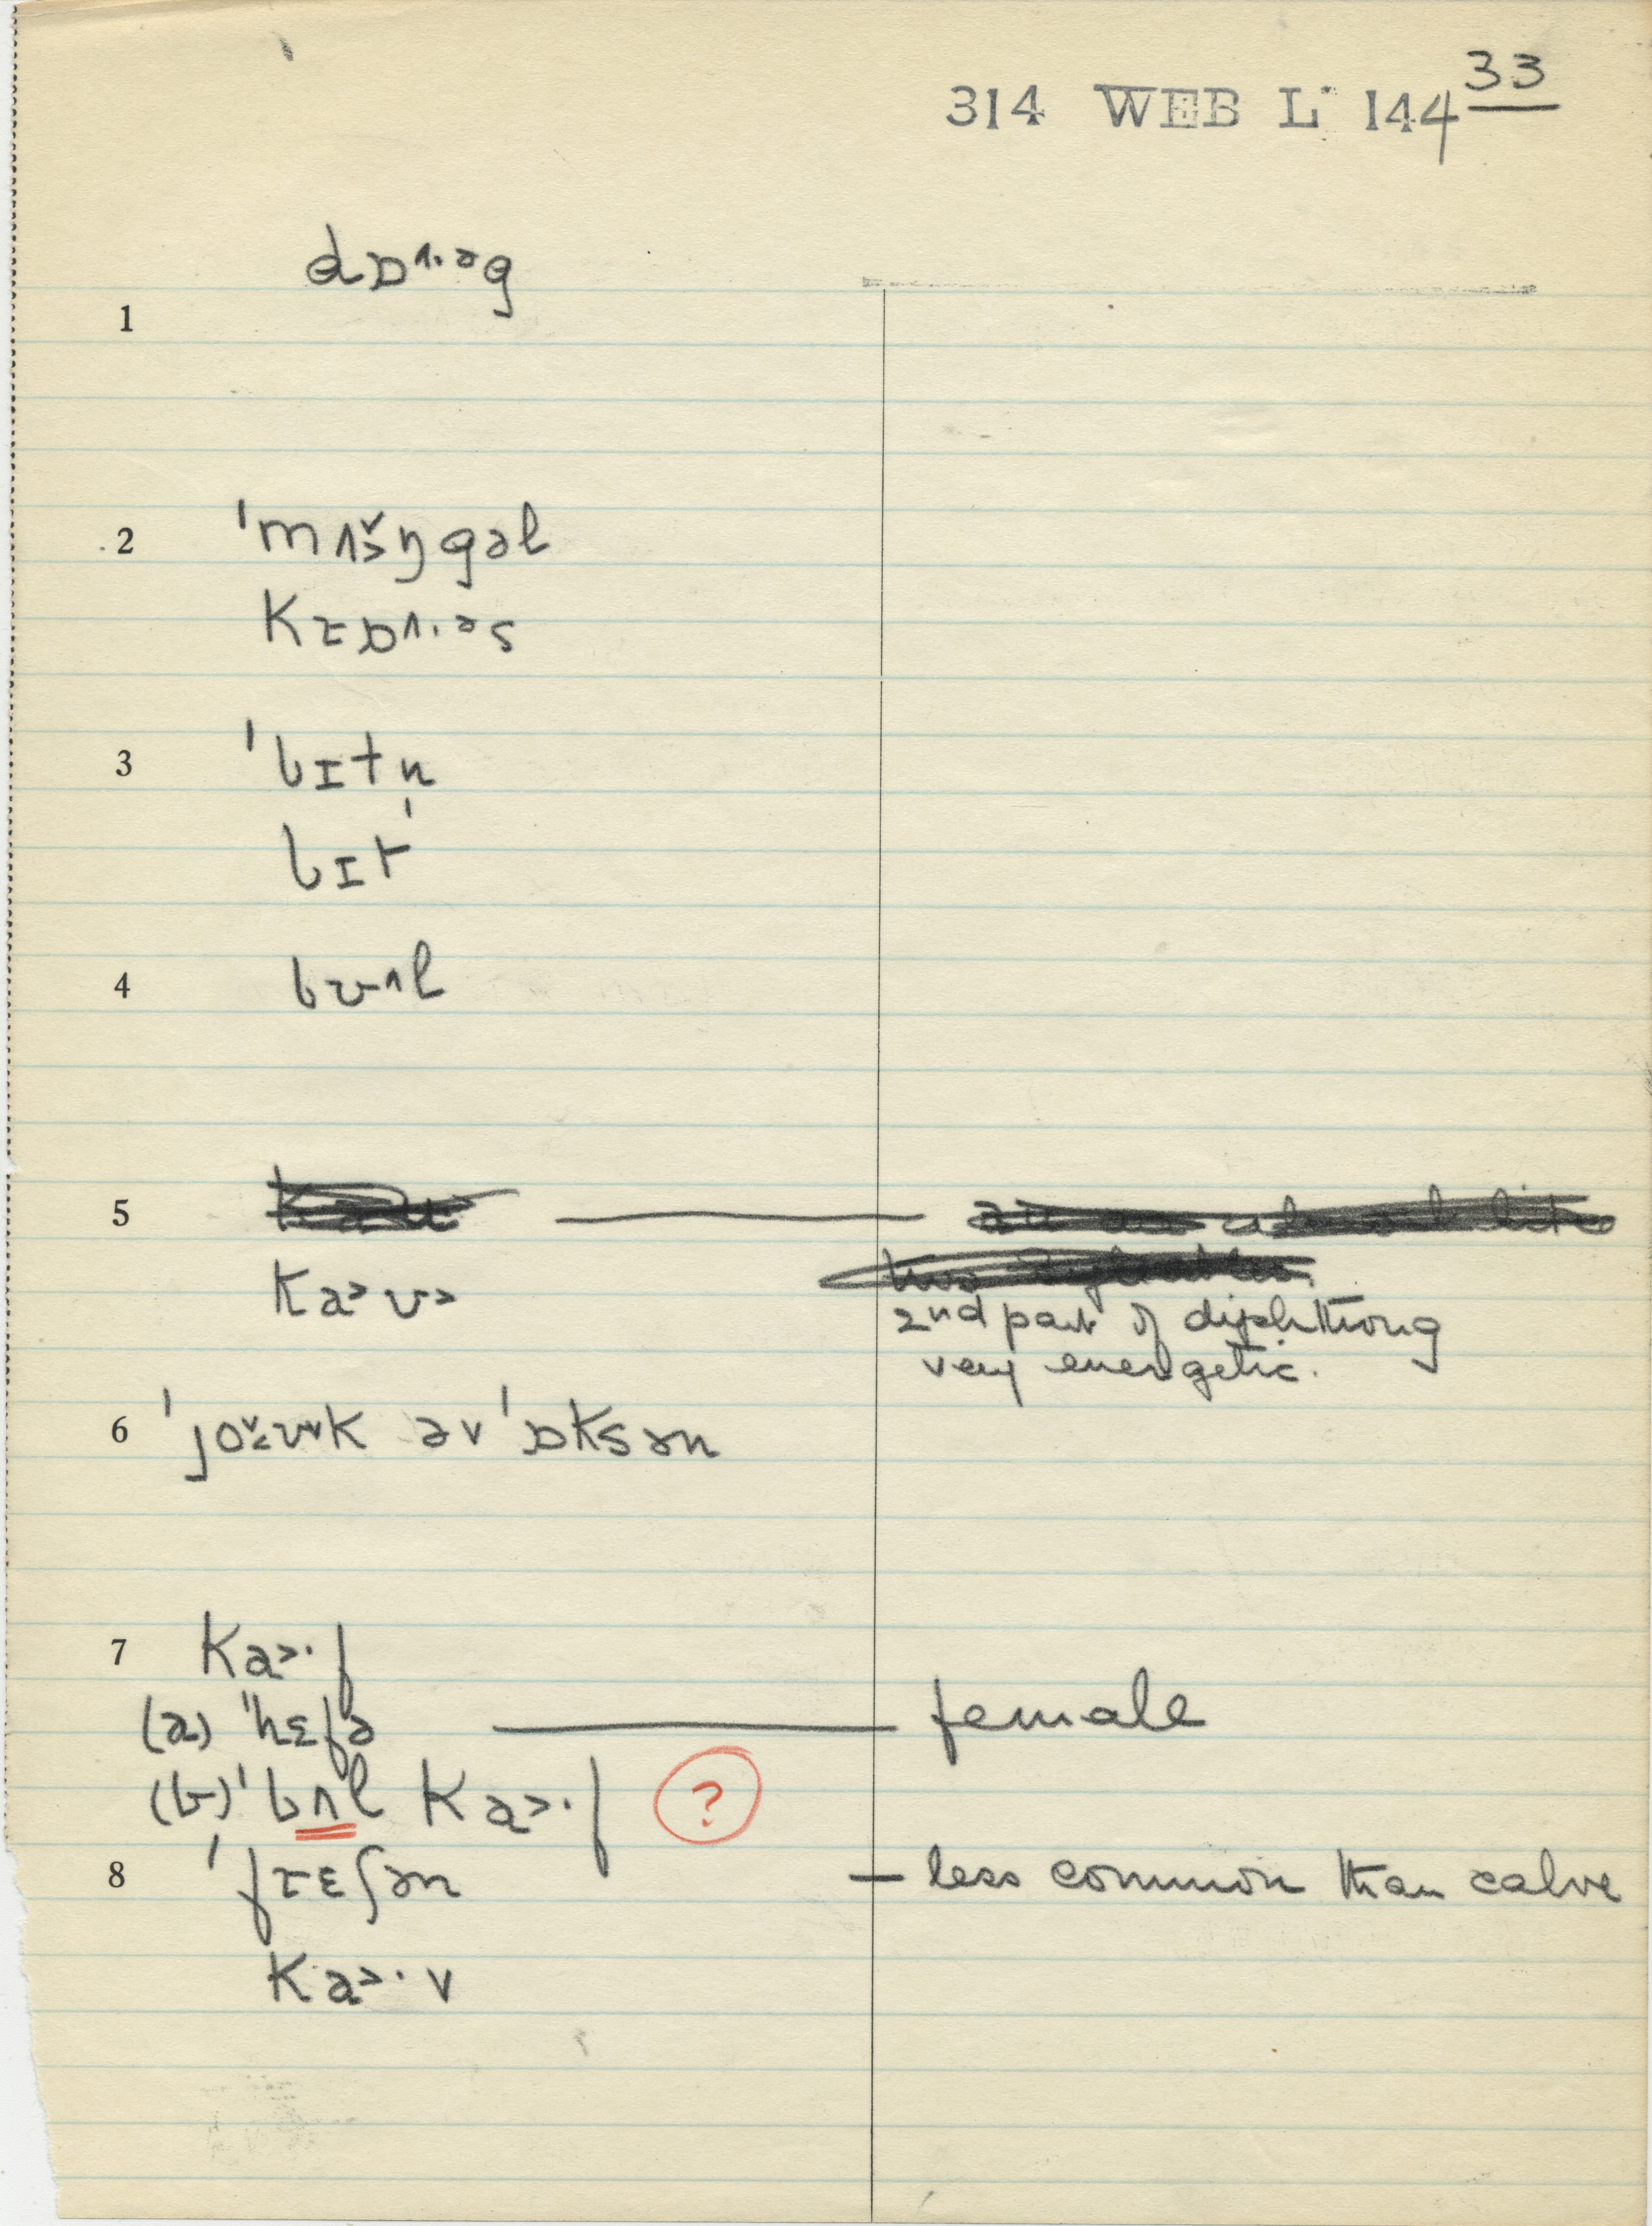 33
314 WEB L· 144
dɒ^· əg
1
2 ˈmʌɔ̌ŋgəl
Kɪɒ^·əs
3 ˈbɪtn̩
bɪt
4 bʊ^l
5
Ka>ʊ>
2nd part of diphthong
very energetic.
6 ˈjoʊk əvˈɒksən
7 Ka>·f
(a) ˈhɛfə — female
(b) ˈbʌl Ka>·f ?
8 ˈfɪɛʃən — less common than calve
Ka>·v